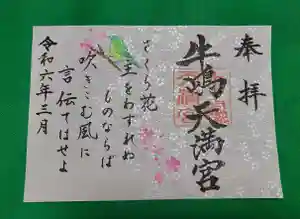 奉拝
牛嶋天満宮
さくら花
主をわすれぬ
ものならば
吹きこむ風に
言伝てはせよ
令和六年三月